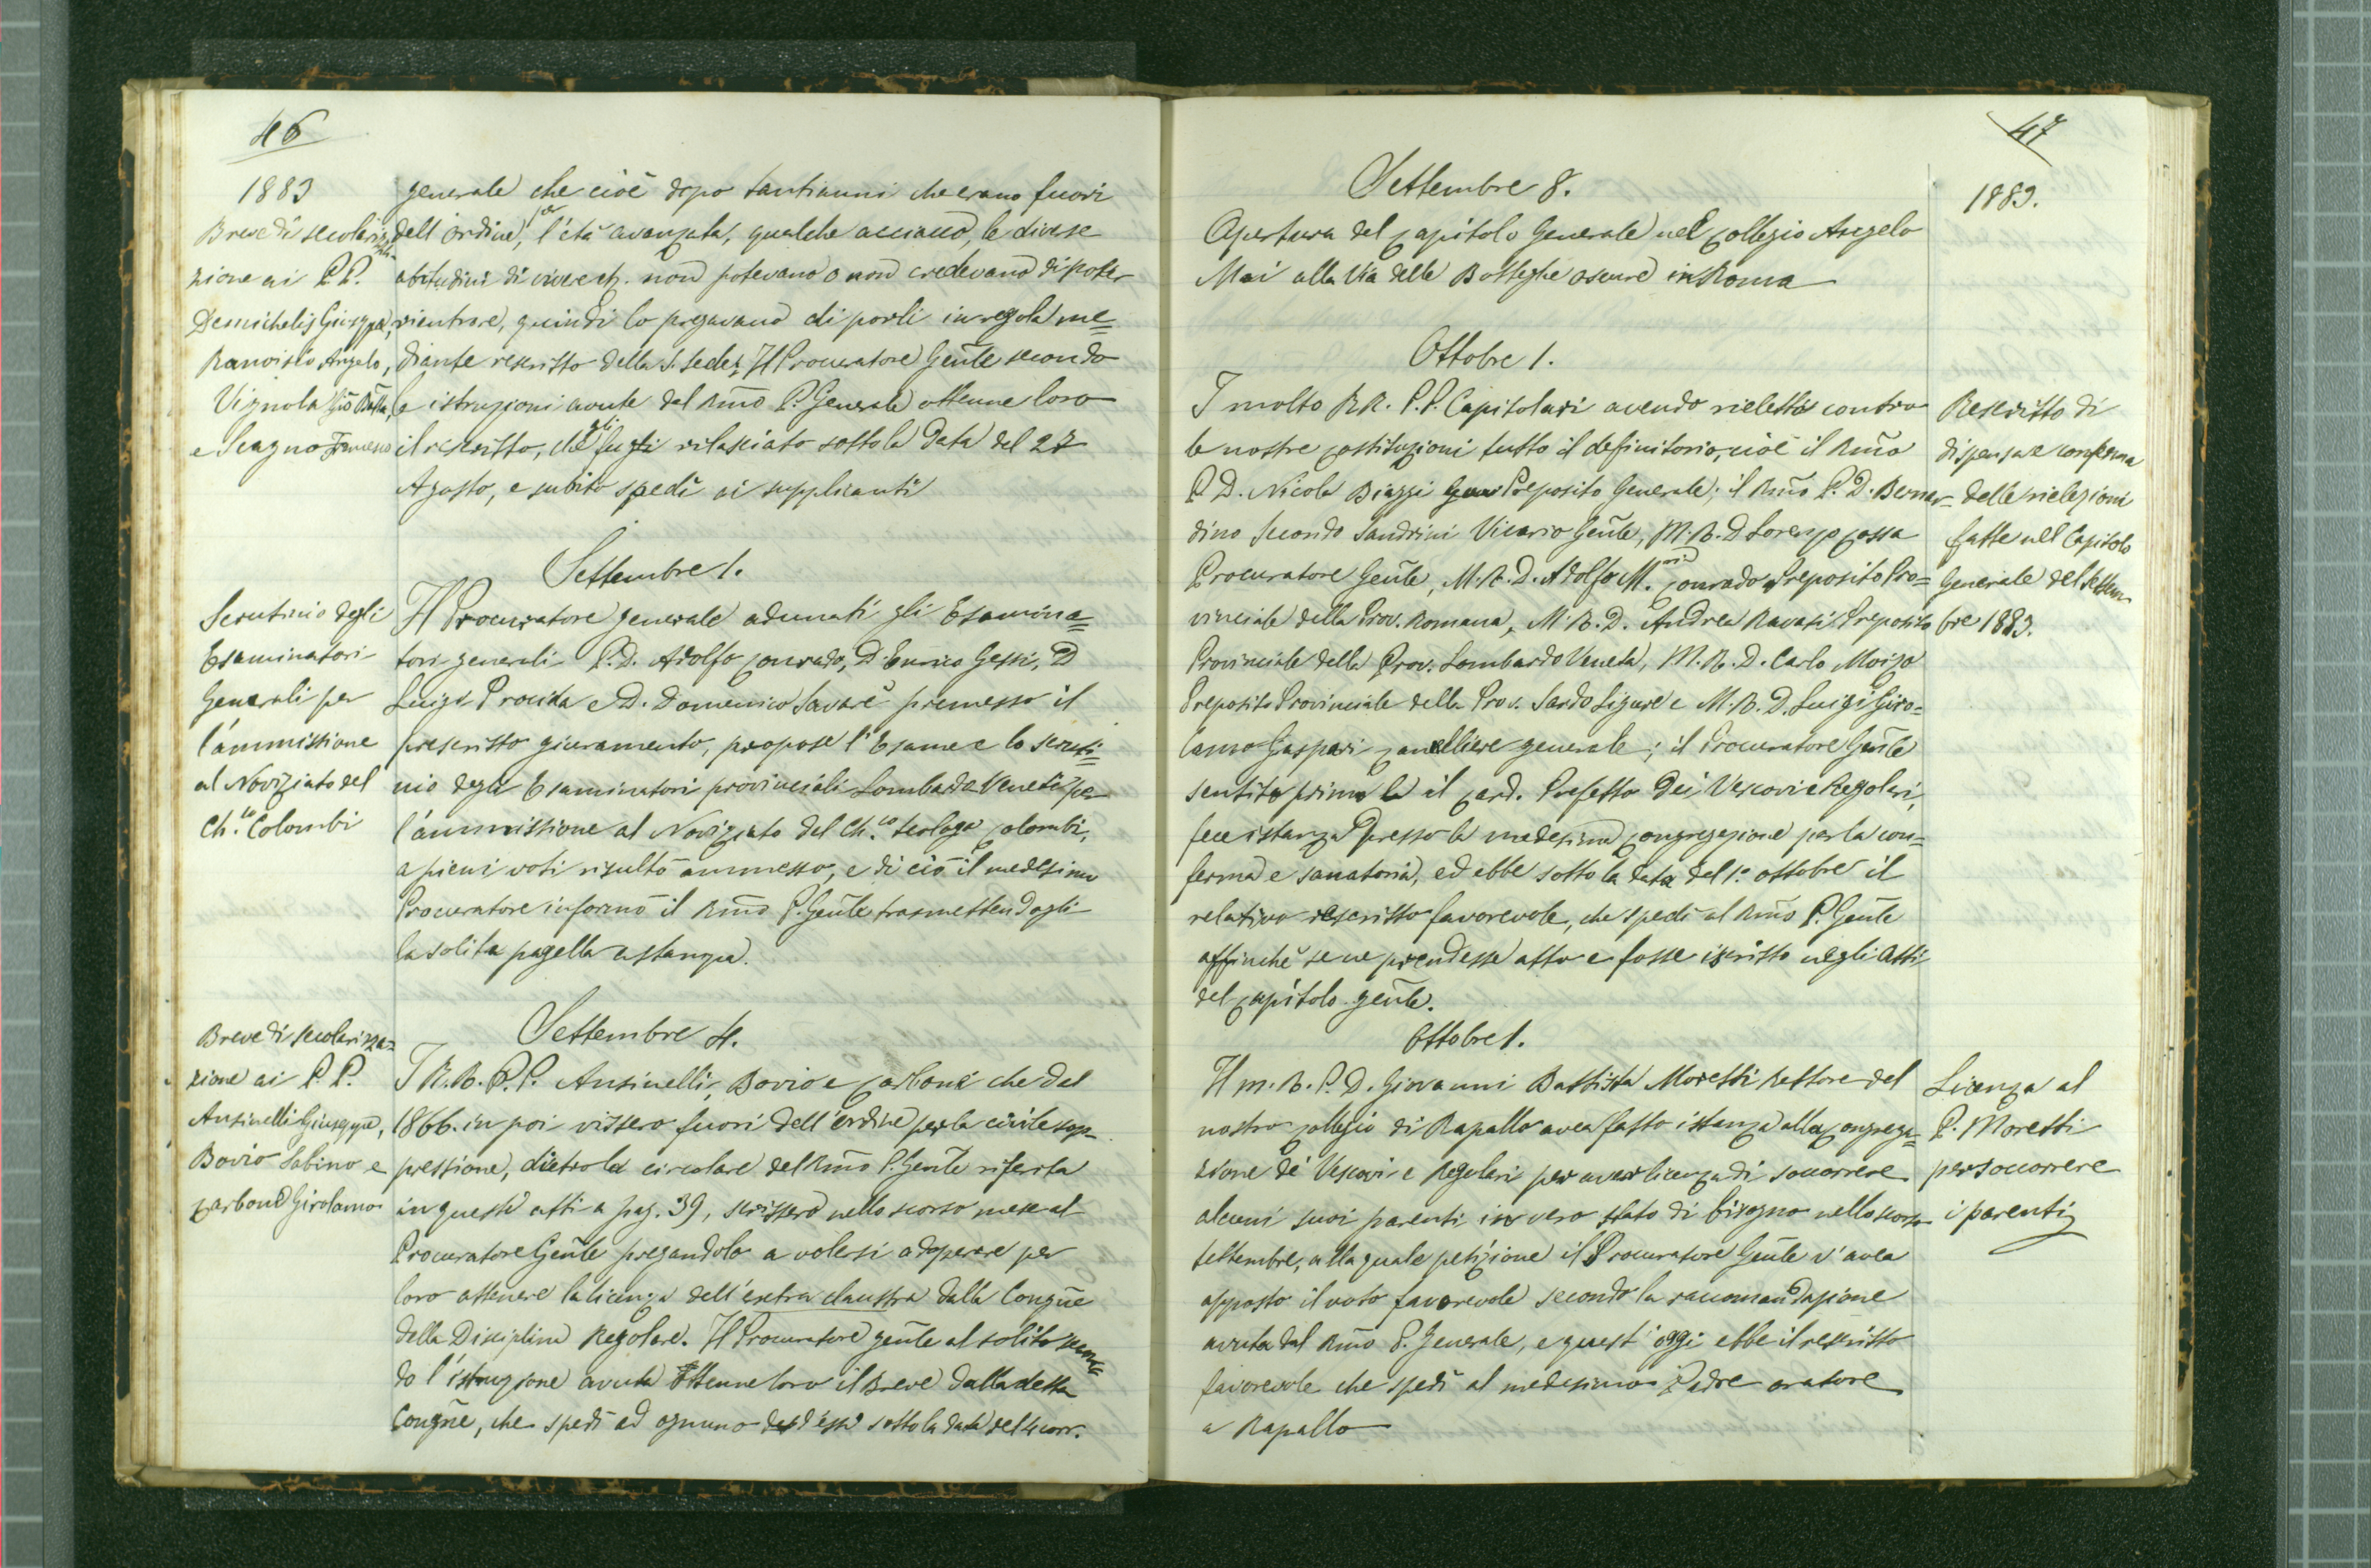 46
1883
Breve di secolarizza-
zione ai P.P.
Demichelis Giuseppe,
Ranoisio Angelo,
Vignola Gio Batta,
e Scagno Franceso
generale che cioè dopo tanti anni che erano fuori
dell'ordine, per l'età avanzata, qualche acciacco, le diverse
abitudini di vivere etc. non potevano o non credevano di poter
rientrare, quindi lo pregavano di porli in regola me=
diante rescritto della S. Sede; Il Procuratore Genle secondo
le istruzioni avute dal Rmo P. Generale ottenne loro
il rescritto, che gli fu rilasciato sotto la data del 27
Agosto, e subito spedì ai supplicanti
Settembre 1.
Scrutinio degli
Esaminatori
Generali per
l'ammissione
al Noviziato del
Ch.co Colombi
Il Procuratore generale adunati gli Esamina=
tori generali P.D. Adolfo Conrado, D. Enrico Gessi, D
Luigi Procida e D. Domenico Savarè premesso il
prescritto giuramento, propose l'Esame e lo scruti=
nio degli Esaminatori provinciali Lombardo Veneti per
l'ammissione al Noviziato del Ch.co teologo Colombi,
a pieni voti risultò ammesso, e di ciò il medesimo
Procuratore informò il Rmo P. Genle trasmettendogli
la solita pagella a stampa.
Settembre 4.
Breve di secolarizza=
zione ai P.P.
Ansinelli Giuseppe,
Bovio Sabino e
Carbone Girolamo
I R.R. P.P. Ansinelli, Bovio e Carbone che dal
1866. in poi vissero fuori dell'ordine per la civile sop-
pressione, dietro la circolare del Rmo P. Genle riferita
in questi atti a pag. 39, scrissero nello scorso mese al
Procuratore Genle pregandolo a volersi adoperare per
loro ottenere la licenza dell'extra claustra dalla Congne
della Disciplina Regolare. Il Procuratore genle al solito secon=
do l'istruzione avuta ottenne loro il Breve dalla detta
Congne, che spedì ad ognuno d'essi sotto la data del 4 corr.
47
1883.
Settembre 8.
Apertura del Capitolo Generale nel Collegio Angelo
Mai alla Via delle Botteghe oscure in Roma
Ottobre 1.
Rescritto di
dispensa e conferma
delle rielezioni
fatte nel Capitolo
Generale del Settem-
bre 1883.
I molto RR. P.P. Capitolari avendo rieletto contro
le nostre Costituzioni tutto il definitorio, cioè il Rmo
P. D. Nicola Biaggi Preposito Generale; il Rmo P. D. Bernar=
dino Secondo Sandrini Vicario Genle, M.R.D Lorenzo Cossa
Procuratore Genle, M.R.D. Adolfo M. Conrado Preposito Pro=
vinciale della Prov. Romana, M.R.D. Andrea Ravasi Preposito
Provinciale della Prov. Lombardo Veneta, M.R.D. Carlo Moizo
Preposito Provinciale della Prov. Sardo Ligure e M.R.D. Luigi Giro=
lamo Gaspari Cancelliere generale; il Procuratore Genle
sentito prima il Card. Prefetto dei Vescovi e Regolari,
fece istanza presso la medesima Congregazione per la con=
ferma e sanatoria, ed ebbe sotto la data del 1° ottobre il
relativo rescritto favorevole, che spedì al Rmo P. Genle
affinchè se ne prendesse atto e fosse iscritto negli Atti
del Capitolo genle.
Ottobre 1.
Licenza al
P. Moretti
per soccorrere
i parenti
Il m. R. P. D. Giovanni Battista Moretti Rettore del
nostro Collegio di Rapallo avea fatto istanza alla Congrega=
zione de' Vescovi e Regolari per aver licenza di soccorrere
alcuni suoi parenti in vero stato di bisogno nello scorso
settembre, alla quale petizione il Procuratore Genle v'avea
apposto il voto favorevole secondo la raccomandazione
avuta dal Rmo P. Generale, e quest'oggi ebbe il rescritto
favorevole che spedì al medesimo Padre oratore
a Rapallo